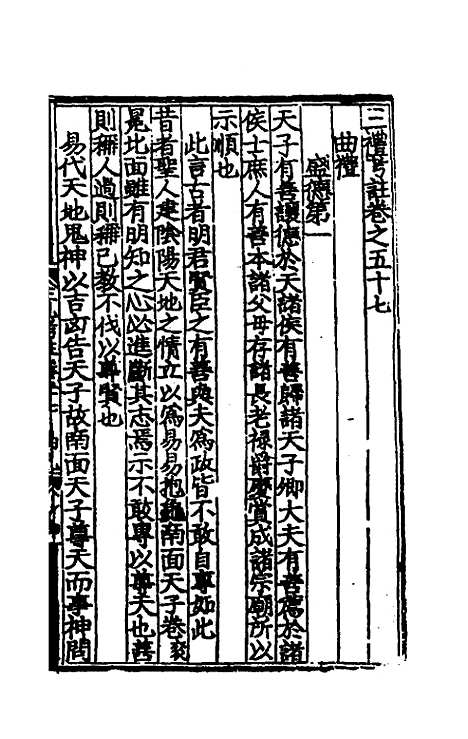 三禮考註卷之五十七
曲禮
盛德第一
天子有善讓德於天諸侯有善歸諸天子卿大夫有善薦於諸
侯士庶人有善本諸父母存諸長老禄爵慶賞成諸宗廟所以
示順也
此言古者明君賢臣之有善與夫為政皆不敢自專如此
昔者聖人建陰陽天地之情立以為易易抱龜南面天子卷衮
冕北面雖有明知之心必進斷其志焉示不敢專以尊天也善
則稱人過則稱己教不伐以尊賢也
易代天地鬼神以吉凶告天子故南面天子尊天而事神問